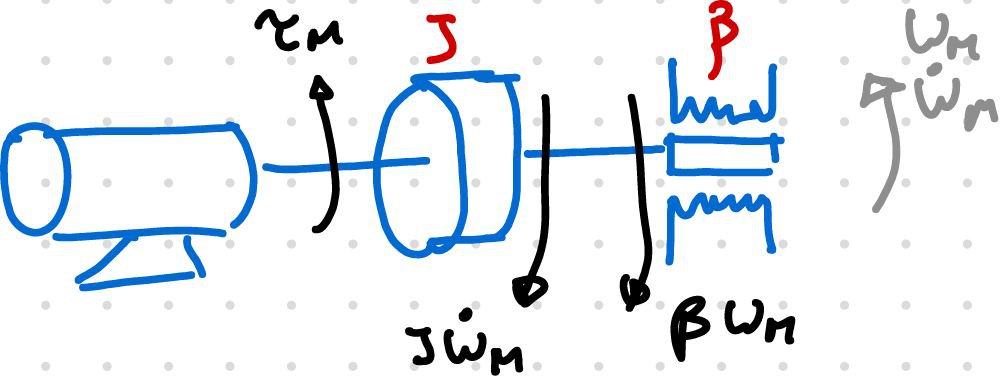 τM
J
β
ωM
ω̇M
Jω̇M
βωM